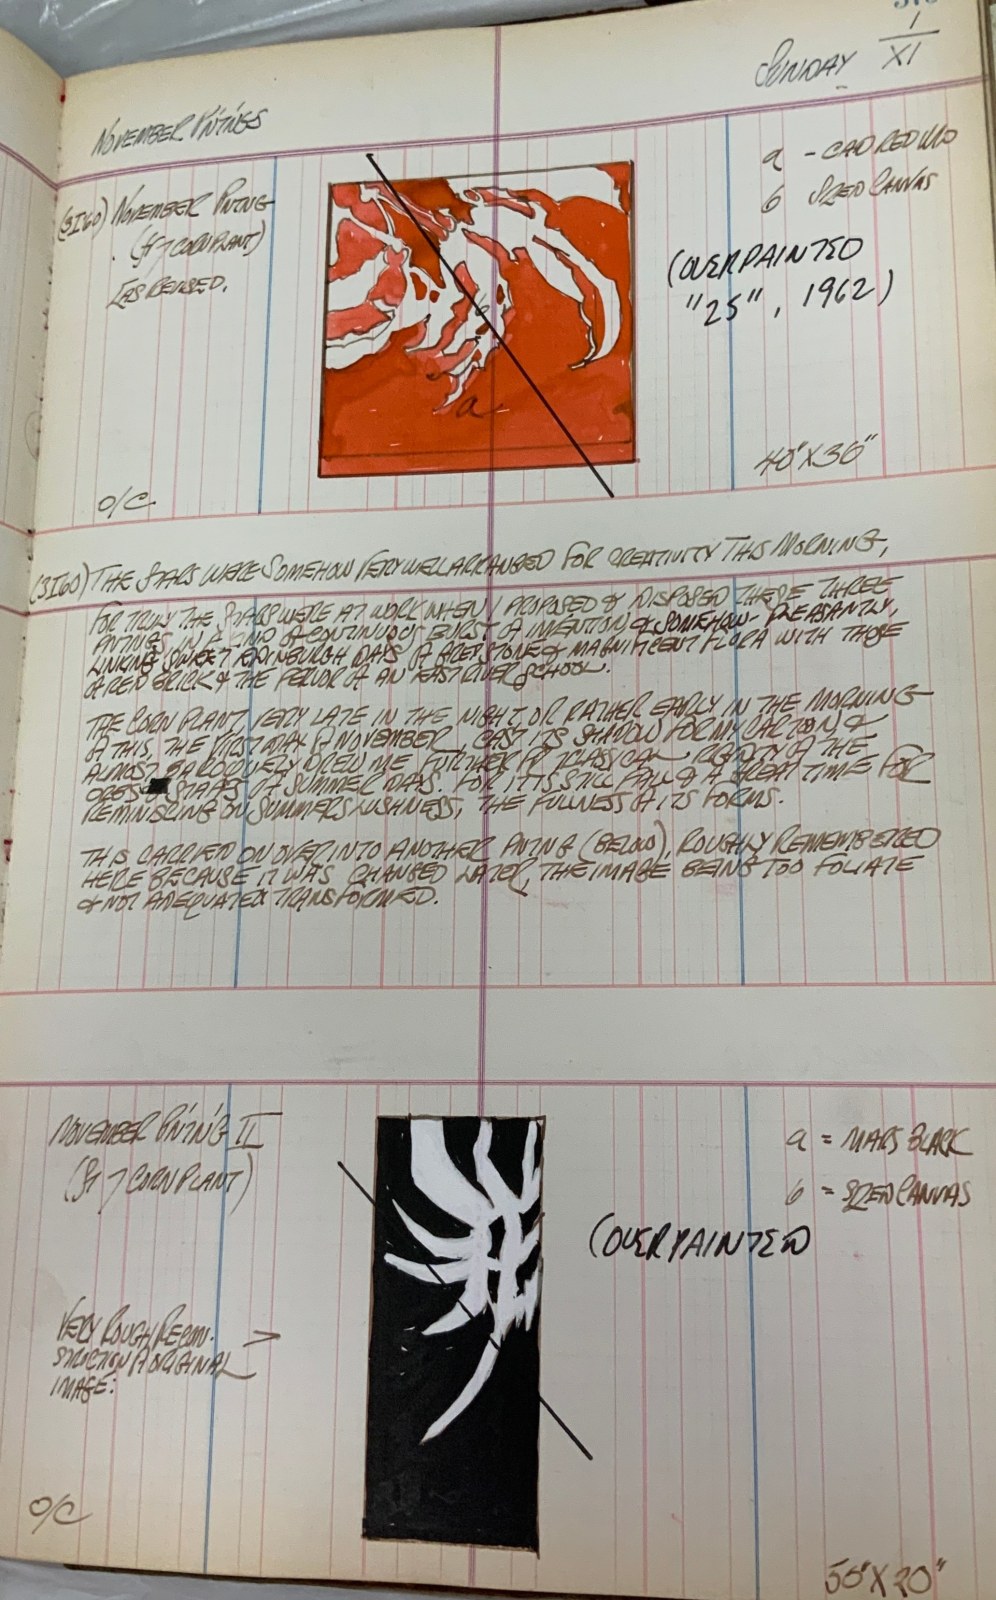 SUNDAY 1/XI
NOVEMBER P'NT'NGS
(3I60) NOVEMBER P'NT'NG
(ST 7 CORN PLANT)
[AS REVISED.
a - CAD RED
b SIZED CANVAS
(OVERPAINTED
"25", 1962)
b
a
40" X 36"
O/C
(3I60) THE STARS WERE SOMEHOW VERY WELL ARRANGED FOR CREATIVITY THIS MORNING,
FOR TRULY THE STARS WERE AT WORK WHEN I PROPOSED & DISPOSED THESE THREE
P'NT'NGS IN A KIND OF CONTINUOUS BURST OF INVENTION & SOMEHOW - PLEASANTLY,
LINKING SWEET EDINBURGH DAYS OF GREY STONE & MAGNIFICENT FLORA WITH THOSE
OF RED BRICK & THE FERVOR OF AN EAST RIVER SCHOOL.
THE CORN PLANT, VERY LATE IN THE NIGHT, OR RATHER EARLY IN THE MORNING
OF THIS, THE FIRST DAY OF NOVEMBER, CAST ITS SHADOW FOR MY CARTOON, &
ALMOST BAROQUELY DREW ME FURTHER CLASSICAL RIGIDITY OF THE
& STAFFS OF SUMMER DAYS. FOR IT IS STILL FALL & A GREAT TIME FOR
REMINISCING ON SUMMERS LUSHNESS, THE FULLNESS OF ITS FORMS.
THIS CARRIED ON OVER INTO ANOTHER P'NT'NG (BELOW), ROUGHLY REMEMBERED
HERE BECAUSE IT WAS CHANGED LATER, THE IMAGE BEING TOO FOLIATE
& NOT ADEQUATELY TRANSFORMED.
NOVEMBER P'NT'NG II
(ST 7 CORN PLANT)
a = MARS BLACK
b = SIZED CANVAS
(OVERPAINTED
VERY ROUGH RECON-
STRUCTION OF ORIGINAL
IMAGE:
O/C
50" X 20"